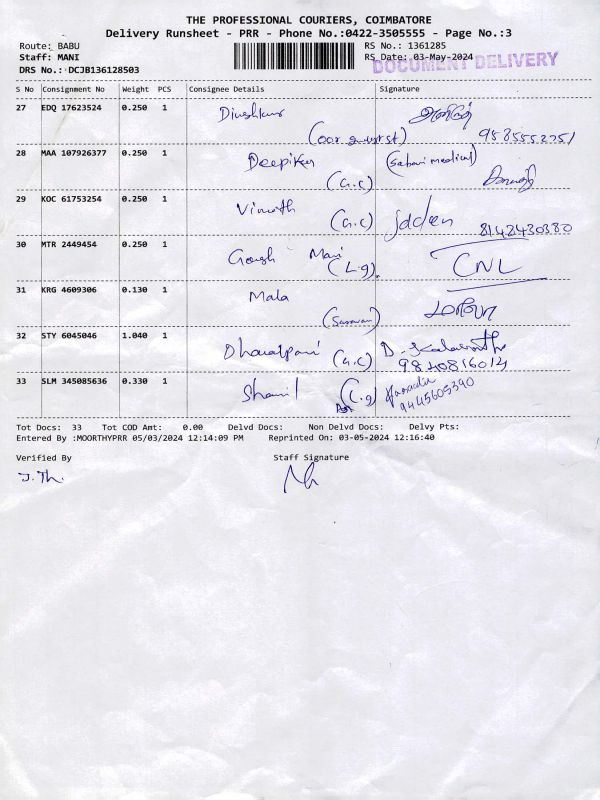 THE PROFESSIONAL COURIERS, COIMBATORE
Delivery Runsheet - PRR - Phone No.:0422-3505555 - Page No.:3
Route: BABU RS No.: 1361285
Staff: MANI RS Date: 03-May-2024
DOCUMENT DELIVERY
DRS No.: DCJB136128503
S No Consignment No Weight PCS Consignee Details Signature
27 EDQ 17623524 0.250 1
28 MAA 107926377 0.250 1 Deepika (Sabari medical)
(G.C)
29 KOC 61753254 0.250 1 Vinoth
(G.C) 8142430380
30 MTR 2449454 0.250 1 Mani
(L.g) CNL
31 KRG 4609306 0.130 1 Mala
(Saravan)
32 STY 6045046 1.040 1 (G.C)
9840816014
33 SLM 345085636 0.330 1 (L.g)
9445605390
Tot Docs: 33 Tot COD Amt: 0.00 Delvd Docs: Non Delvd Docs: Delvy Pts:
Entered By :MOORTHYPRR 05/03/2024 12:14:09 PM Reprinted On: 03-05-2024 12:16:40
Verified By Staff Signature